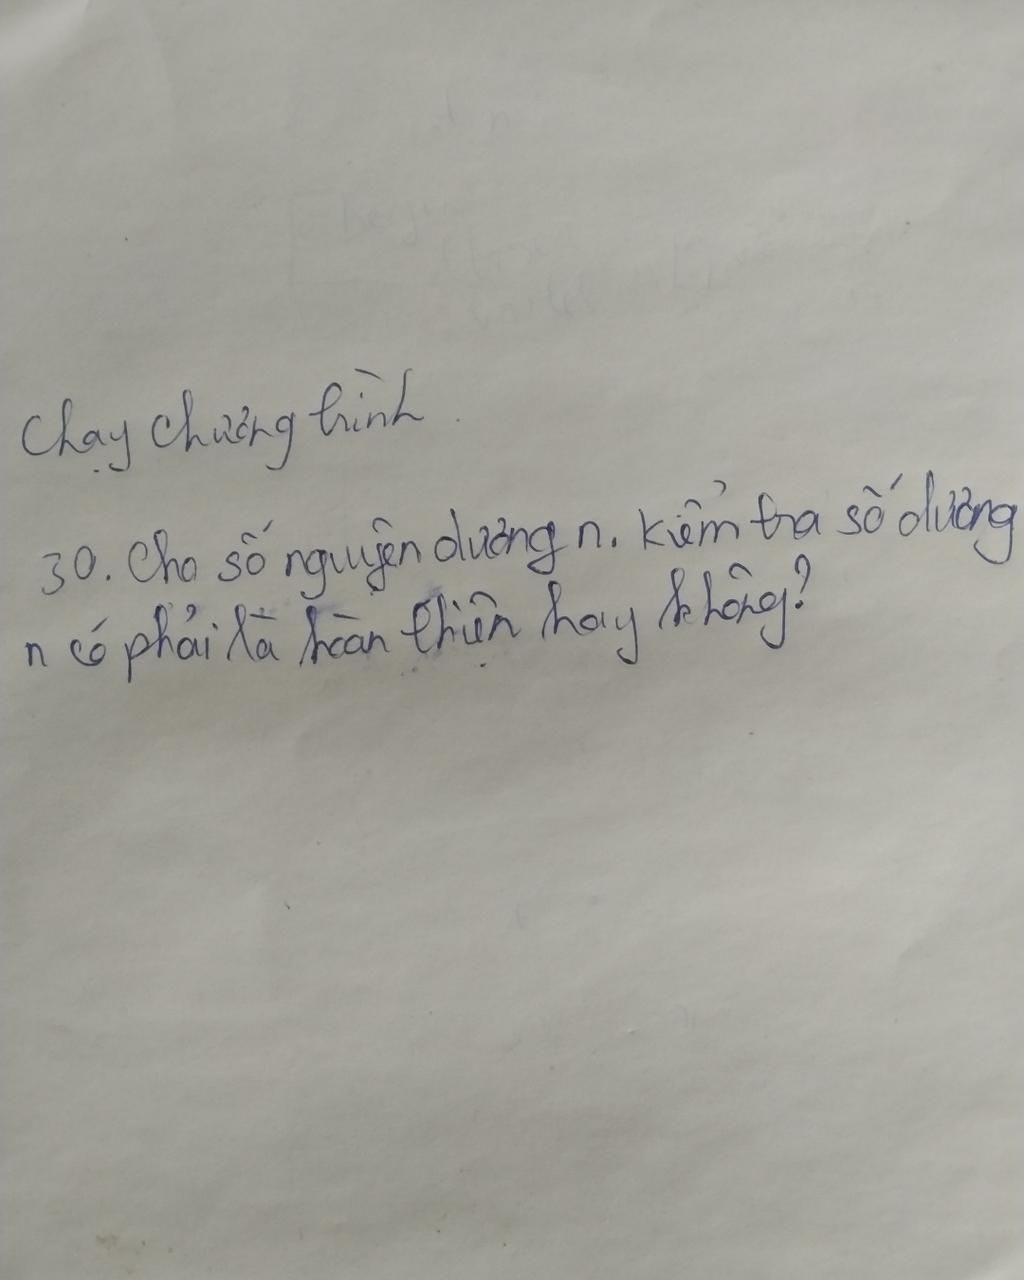 Chạy chương trình
30. Cho số nguyện dương n. kiểm tra số dương
n có phải là hoàn thiện hay không?